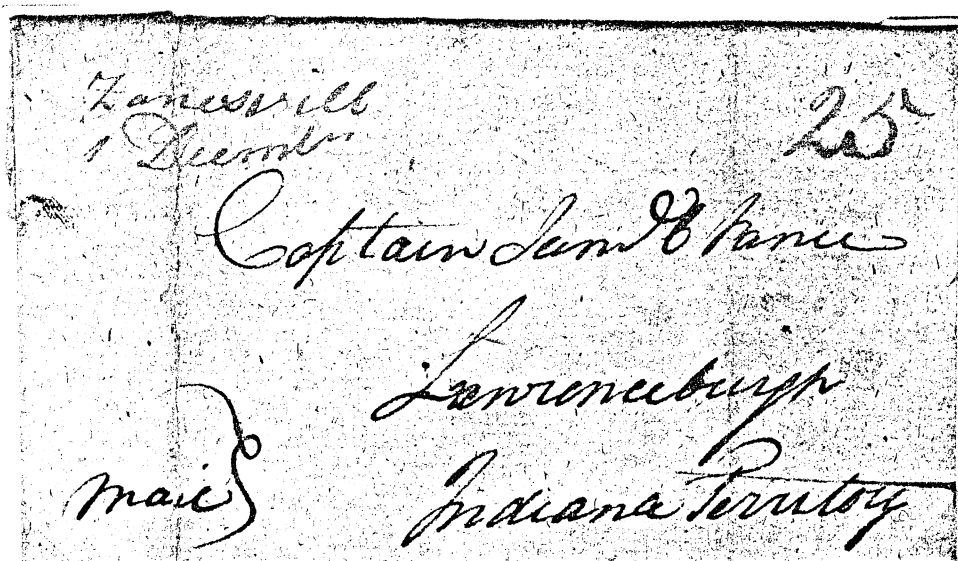 Zanesvill
1 Decembr
25
Captain Saml C Vance
Lawrenceburgh
mail Indiana Territoy